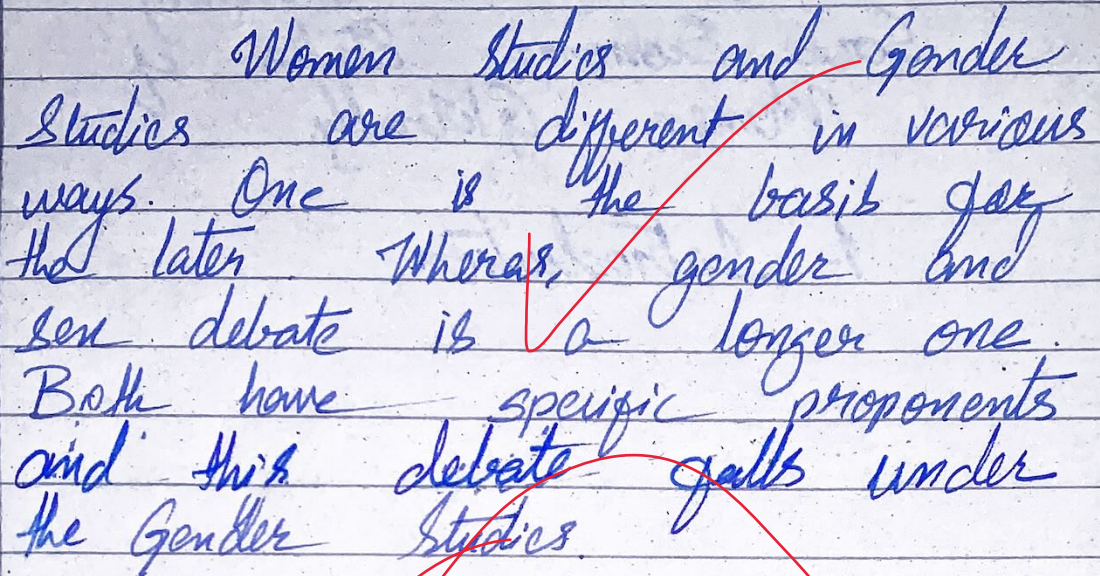 Women Studies and Gender
Studies are different in various
ways. One is the basis for
the later. Wheras, gender and
sex debate is a longer one.
Both have specific proponents
and this debate falls under
the Gender Studies.